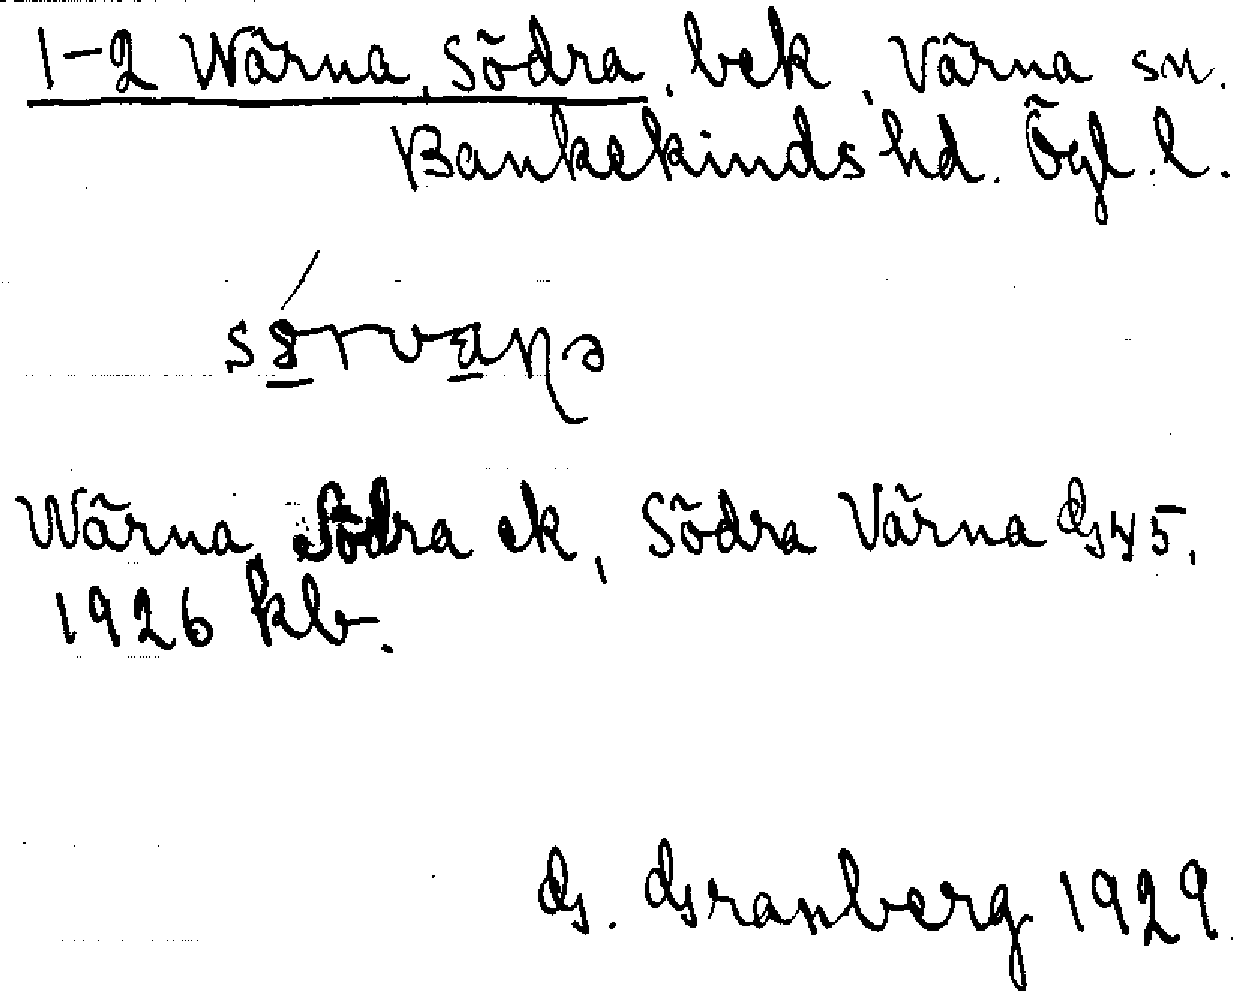 1-2 Wärna, Södra, bek, Värna sn.
Bankekinds hd. Ögl. l.
Wärna, Södra ek, Södra Värna G 45,
1926 kb.
G. Granberg 1929